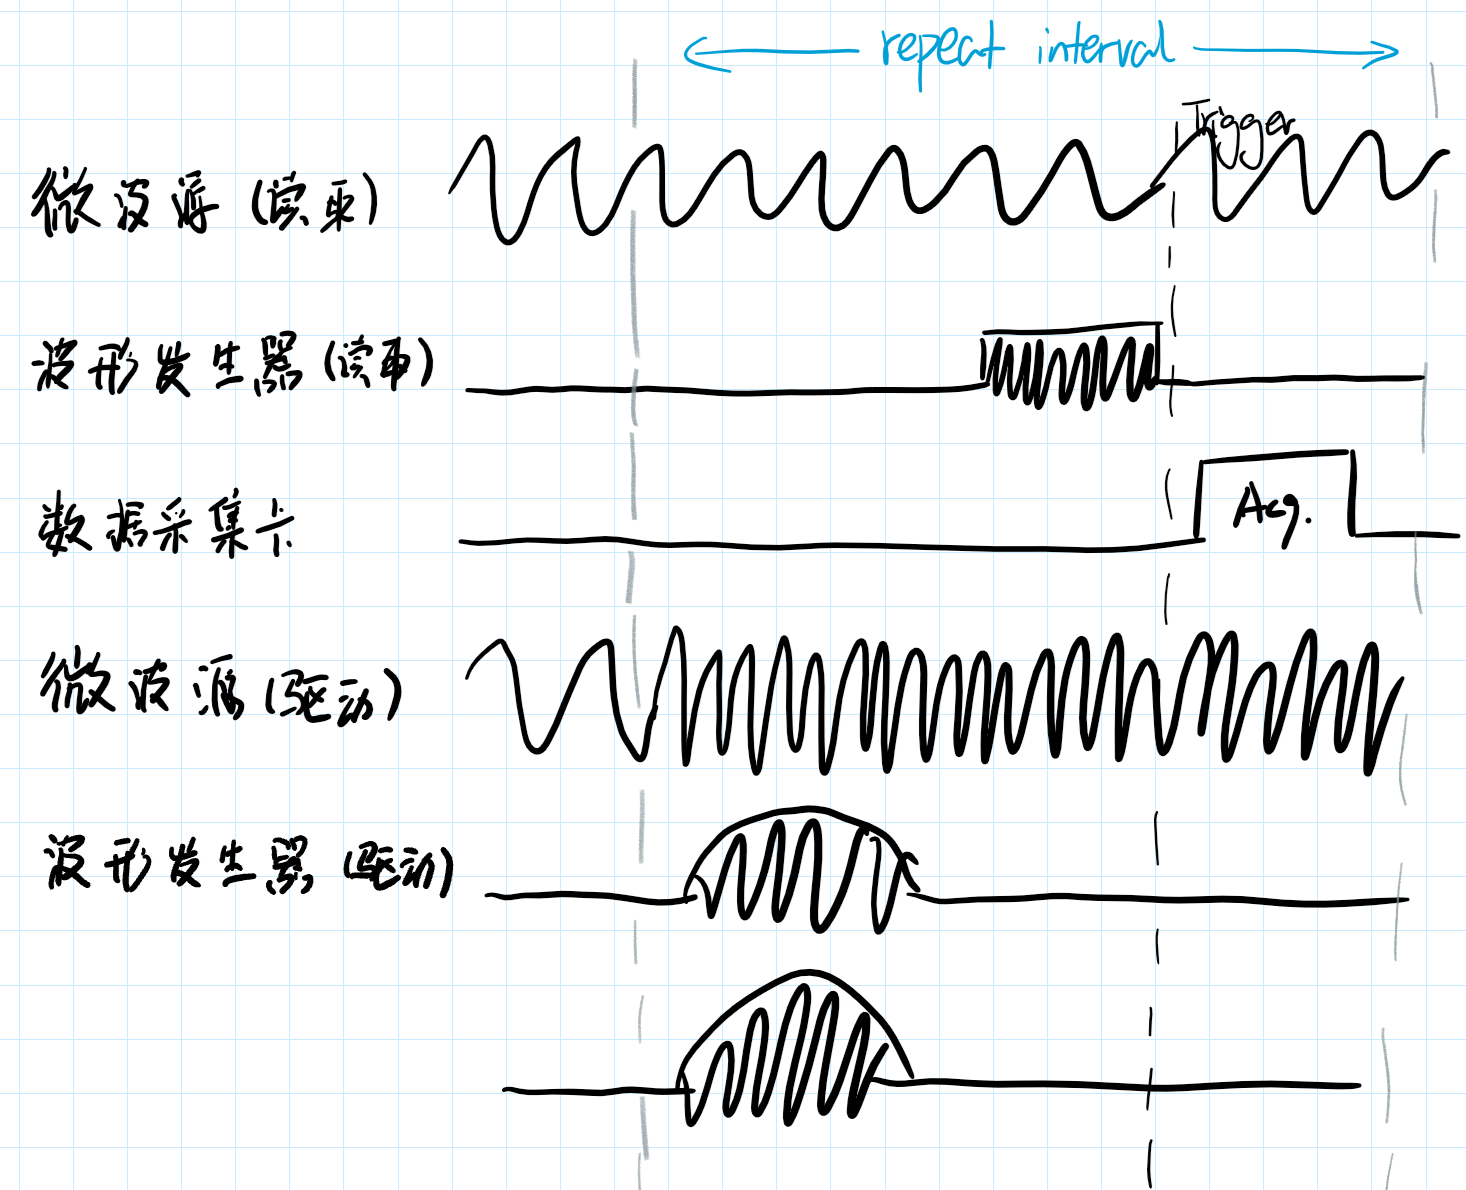 repeat interval
Trigger
微波源 (读取)
波形发生器 (读取)
数据采集卡
Acq.
微波源 (驱动)
波形发生器 (驱动)